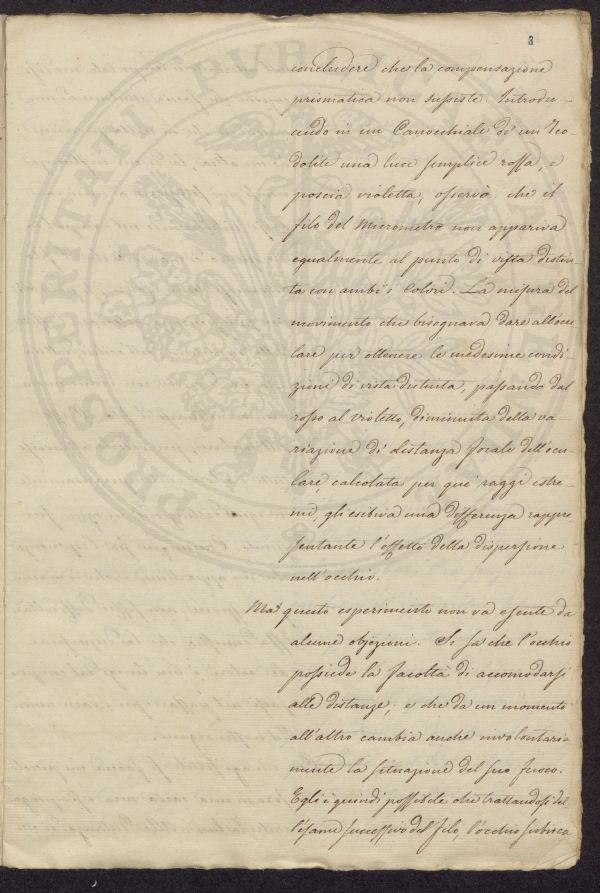 3
concludere che la compensazione
prismatica non susiste. Introdu-
cendo in un Canocchiale di un Teo-
dolite una luce semplice rossa, e
poscia violetta, osservò che il
filo del Micrometro non appariva
egualmente al punto di vista distin-
ta con ambi i Colori. La misura del
movimento che bisognava dare all'ocu-
lare per ottenere le medesime condi-
zioni di vista distinta, passando dal
rosso al violetto, diminuita della va-
riazione di distanza focale dell'ocu-
lare, calcolata per que' raggi estre-
mi, gli esibiva una differenza rappre
sentante l'effetto della dispersione
nell'occhio.
Ma questo esperimento non va esente da
alcune objezioni. Si sa che l'occhio
possiede la facoltà di accomodarsi
alle distanze, e che da un momento
all'altro cambia anche involontaria
mente la situazione del suo fuoco.
Egli è quindi possibile che trattandosi del
l'esame successivo del filo, l'occhio subisca
PROSPERITATI PUBLICAE